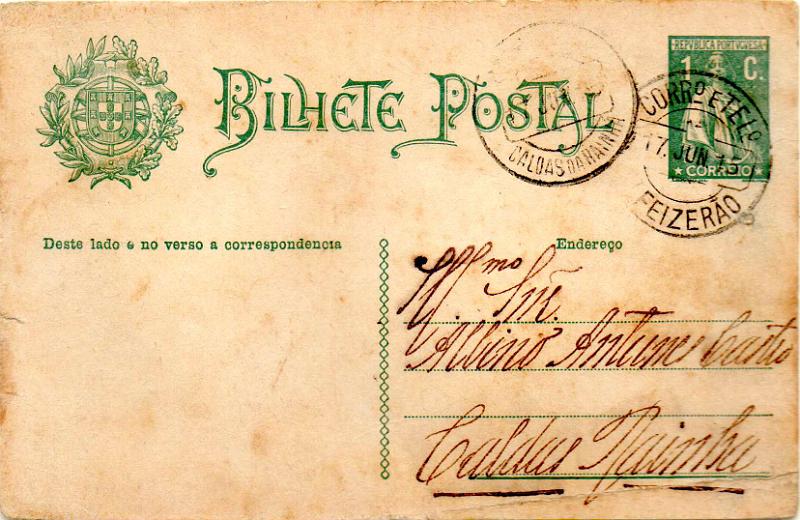 BILHETE POSTAL
REPUBLICA PORTUGUESA
1 C.
CORREIO
CALDAS DA RAINHA
CORRO. E TELO.
17. JUN 15
FEIZERÃO
Deste lado e no verso a correspondencia
Endereço
Illmo Snr.
Albino Antunes Castro
Caldas Rainha